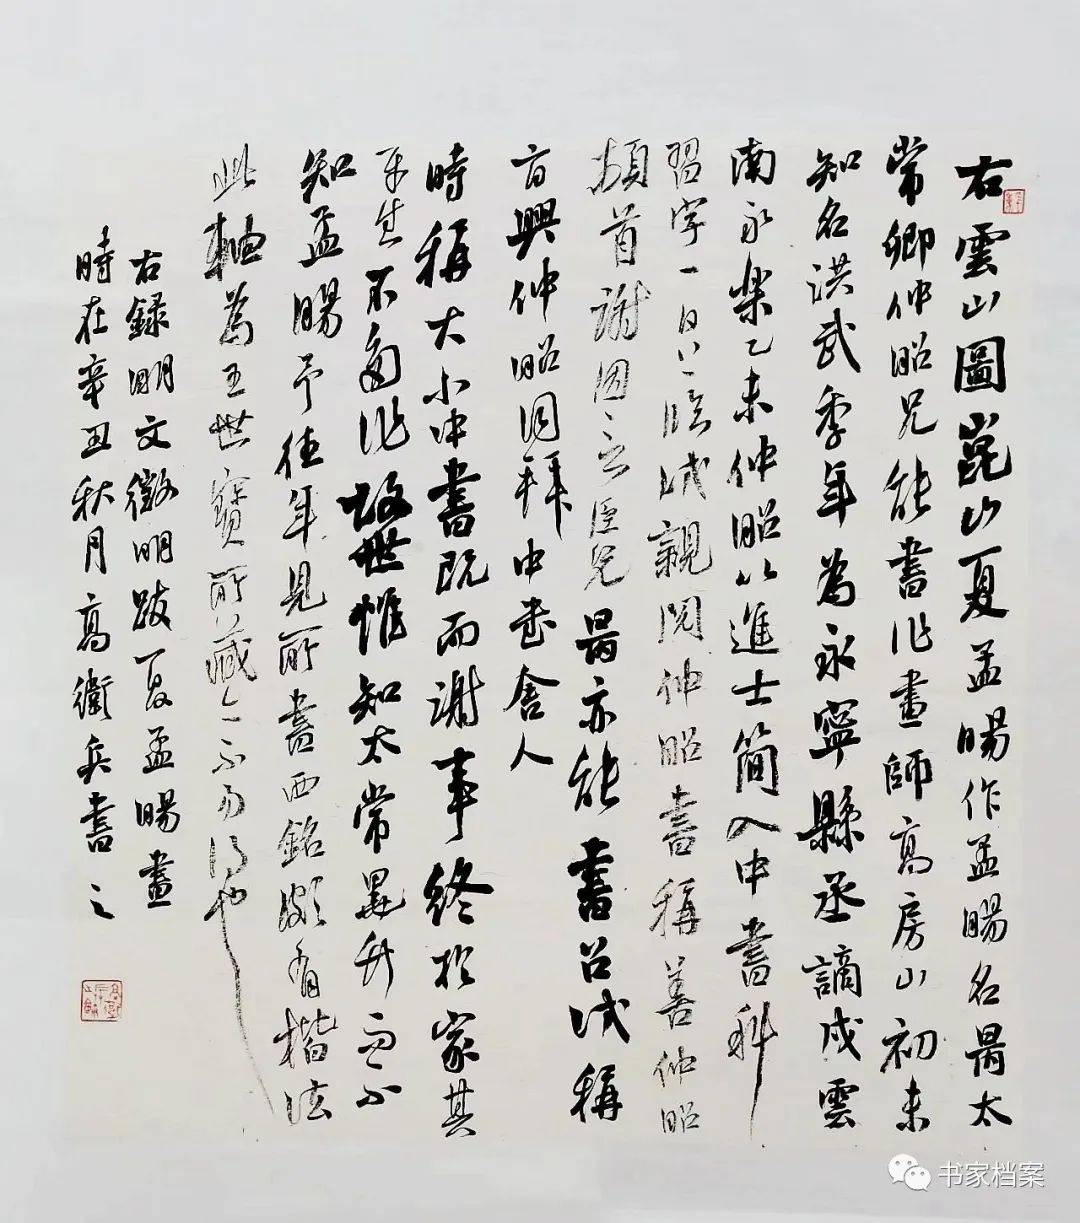 右雲山圖崑山夏孟暘作孟暘名昺太
常卿仲昭兄能書作畫師高房山初未
知名洪武季年為永寧縣丞謫戍雲
南永樂乙未仲昭以進士簡入中書科
習字一日上臨試親閱仲昭書稱善仲昭
頓首謝因言臣兄昺亦能書召試稱
旨與仲昭同拜中書舍人
時稱大小中書既而謝事終於家其
平生不多作故世惟知太常墨竹而不
知孟暘予往年見所書西銘頗有楷法
此軸為王世寶所藏今不易得也
右錄明文徵明跋夏孟暘畫
時在辛丑秋月高衛兵書之
书家档案